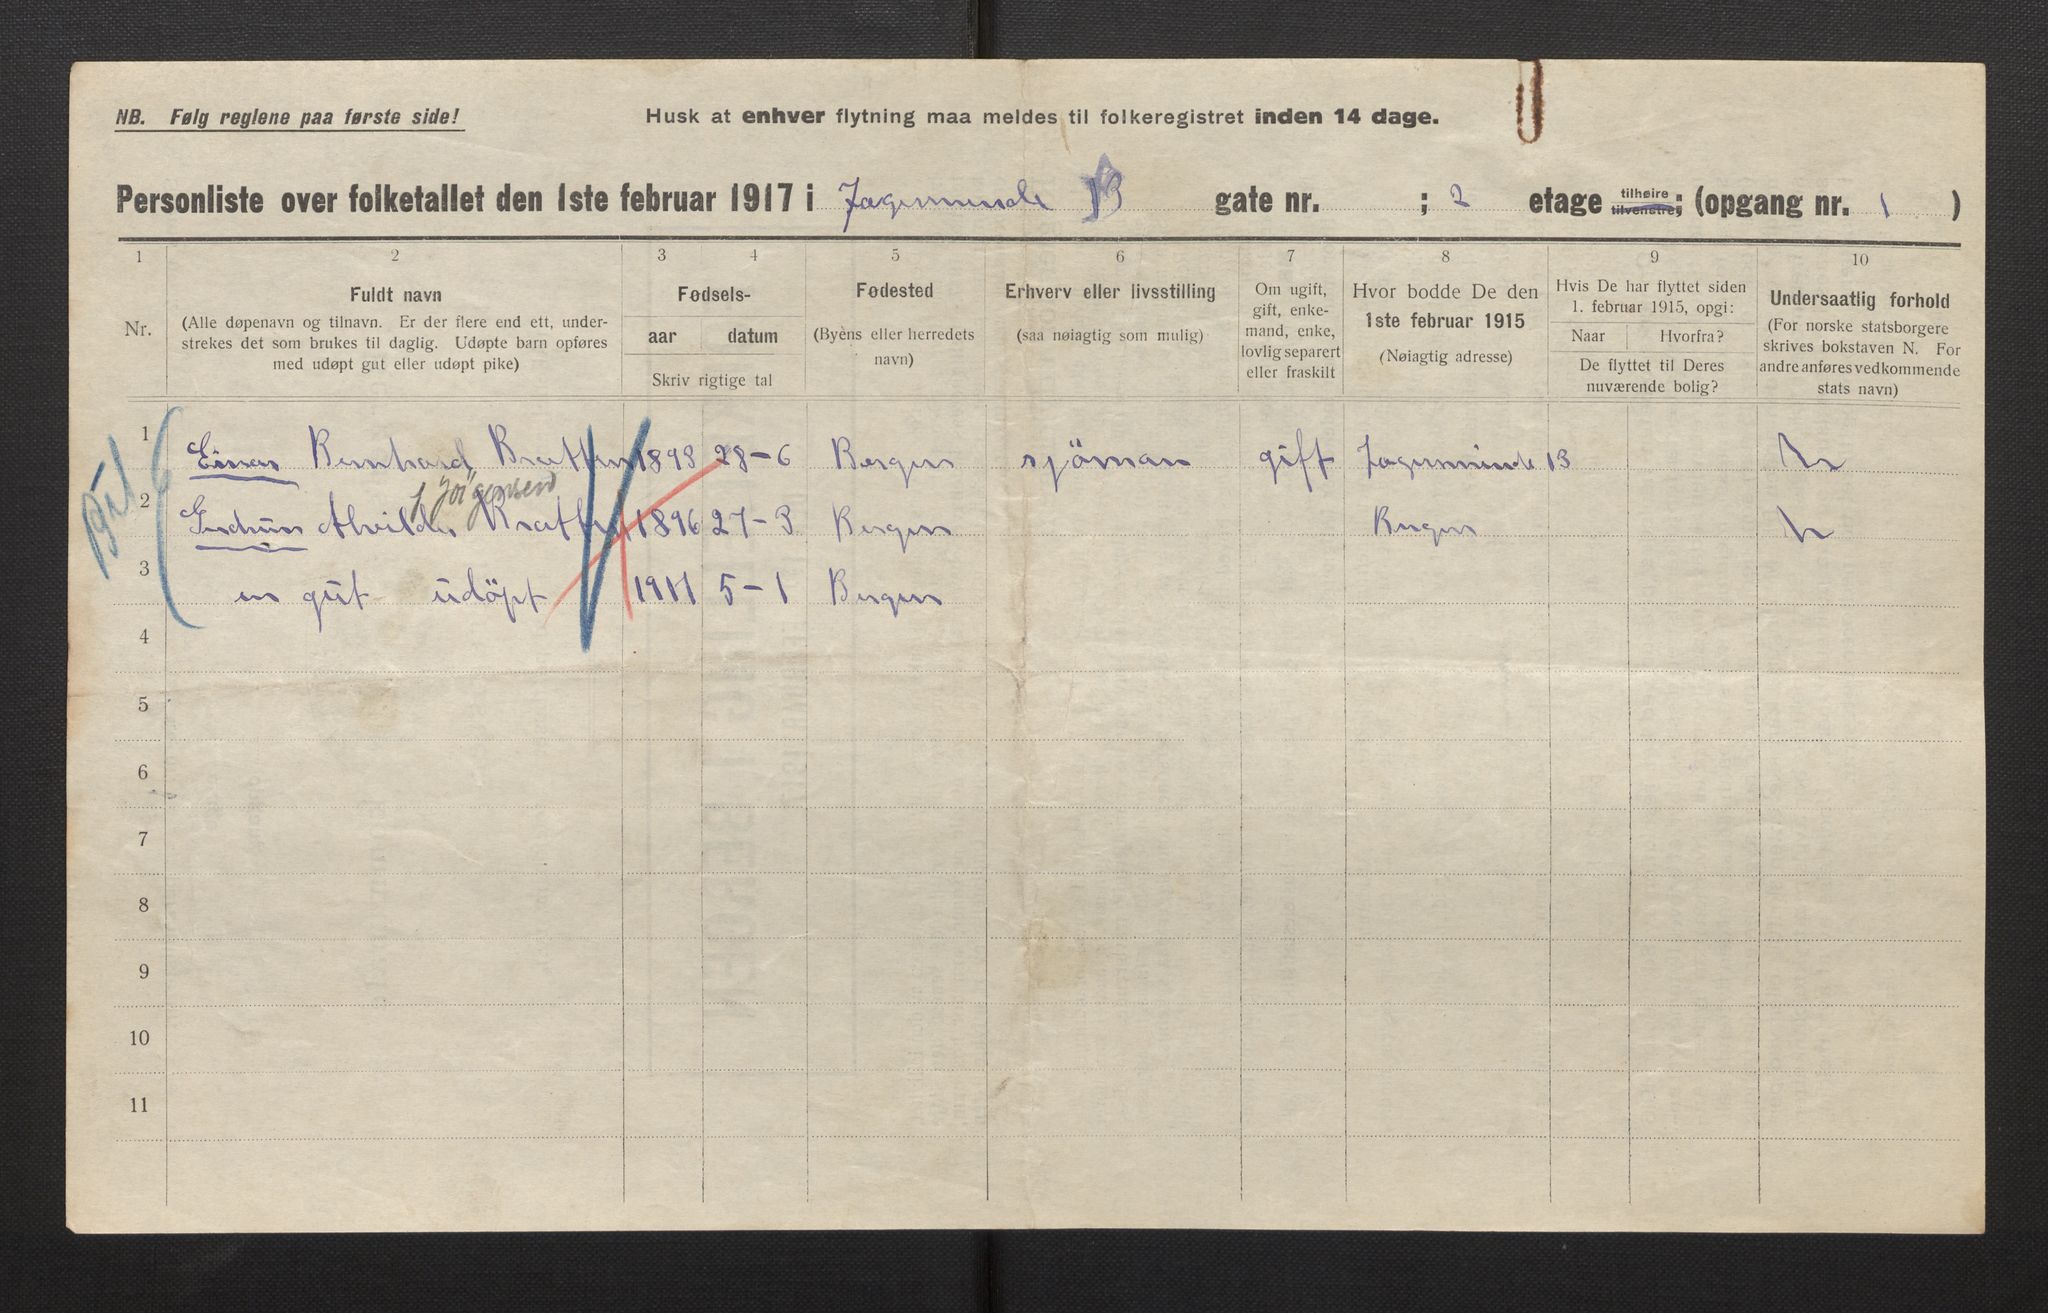 NB. Følg reglene paa første side!
Husk at enhver flytning maa meldes til folkeregistret inden 14 dage.
Personliste over folketallet den 1ste februar 1917 i Jægerminde 13 gate nr. ; 2 etage tilhøire tilvenstre; (opgang nr. 1 )
1 2 3 4 5 6 7 8 9 10
Nr.
Fuldt navn
(Alle døpenavn og tilnavn. Er der flere end ett, under-
strekes det som brukes til daglig. Udøpte barn opføres
med udøpt gut eller udøpt pike)
Fødsels-
aar datum
Skriv rigtige tal
Fødested
(Byèns eller herredets
navn)
Erhverv eller livsstilling
(saa nøiagtig som mulig)
Om ugift,
gift, enke-
mand, enke,
lovlig separert
eller fraskilt
Hvor bodde De den
1ste februar 1915
(Nøiagtig adresse)
Hvis De har flyttet siden
1. februar 1915, opgi:
Naar Hvorfra?
De flyttet til Deres
nuværende bolig?
Undersaatlig forhold
(For norske statsborgere
skrives bokstaven N. For
andre anføres vedkommende
stats navn)
1 Einar Bernhard 1893 28-6 Bergen sjöman gift Jægerminde 13 N
f Jörgensen
2 Gudrun Alvilde 1896 27-3 Bergen Bergen N
3 en gut udöpt 5-1 Bergen
4
5
6
7
8
9
10
11